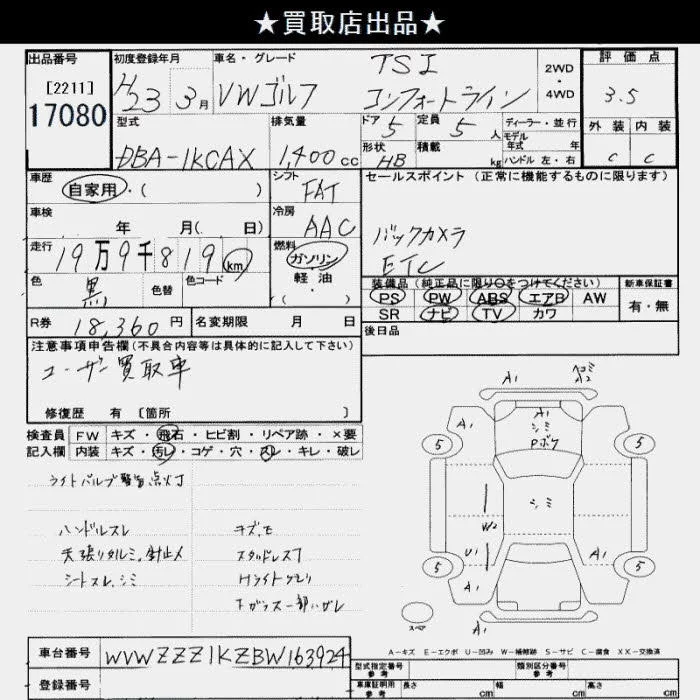 ★買取店出品★
出品番号 初度登録年月 車名・グレード 評価点
[2211] H23 3月 VWゴルフ TSI コンフォートライン 2WD・4WD 3.5
17080
型式 排気量 ドア 5 定員 5人 ディーラー・並行 外装 内装
DBA-1KCAX 1,400cc 形状 HB 積載 kg モデル年式 年 ハンドル 左・右 C C
車歴 シフト セールスポイント(正常に機能するものに限ります)
自家用・( ) FAT
車検 年 月( 日) 冷房 AAC バックカメラ
走行 19万9千819km 燃料 ガソリン ETC
色 黒 色替 色コード 軽・油 ・( ) 装備品(純正品に限り○をつけてください) 新車保証書
PS PW ABS エアB AW 有・無
R券 18,360円 名変期限 月 日 SR ナビ TV カワ
注意事項申告欄(不具合内容等は具体的に記入して下さい) 後日品
ユーザー買取車
修復歴 有 [箇所 ]
検査員 FW キズ・飛石・ヒビ割・リペア跡・×要
記入欄 内装 キズ・汚レ・コゲ・穴・スレ・キレ・破レ
ライトバルブ警告点灯
ハンドルスレ キズ、モ
天張りタルミ、針止メ スタッドレス7
シートスレ、シミ Hライトクモリ
A1 ヘコミ A2
A1 A1 シミ Pボケ A1
5 5
シミ
W2
U1 A1
5 5
A1 A1
スペア A1
A-キズ E-エクボ U-凹み W-補修跡 S-サビ C-腐食 XX-交換済
車台番号 WVWZZZ1KZBW163924 型式指定番号 参考 類別区分番号 参考
登録番号 車庫証明用 参考 長さ cm 幅 cm 高さ cm